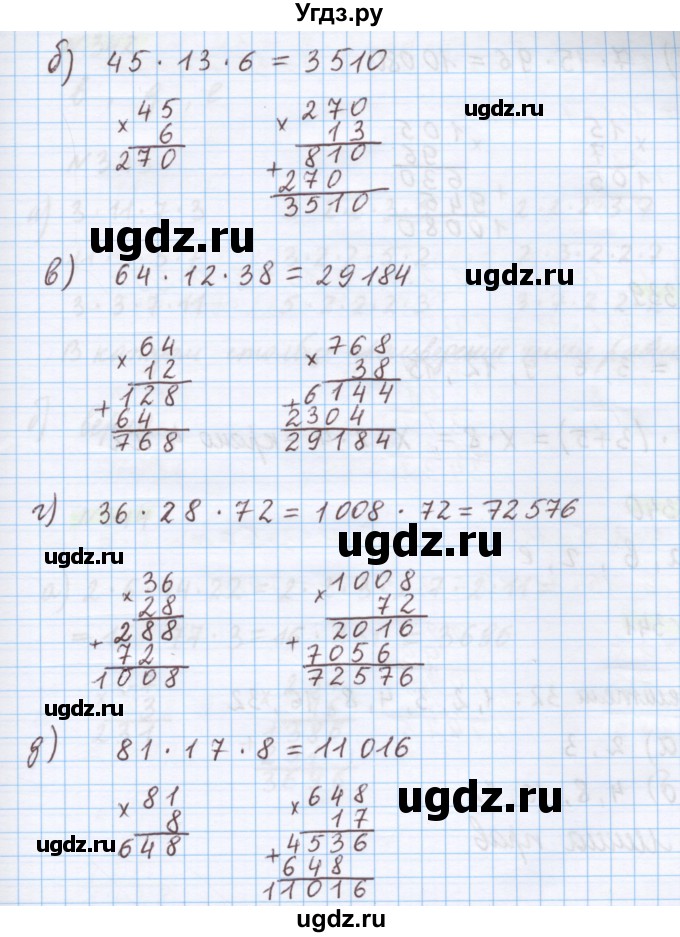 Угдз.ру
б) 45 · 13 · 6 = 3510
× 45
6
270
× 270
13
+ 810
270
3510
ugdz.ru
ugdz.ru
в) 64 · 12 · 38 = 29184
ugdz.ru
× 64
12
+ 128
64
768
× 768
38
+ 6144
2304
29184
г) 36 · 28 · 72 = 1008 · 72 = 72576
ugdz.ru
ugdz.ru
× 36
28
+ 288
72
1008
× 1008
72
+ 2016
7056
72576
ugdz.ru
д) 81 · 17 · 8 = 11016
× 81
8
648
× 648
17
+ 4536
648
11016
ugdz.ru
ugdz.ru
ugdz.ru
ugdz.ru